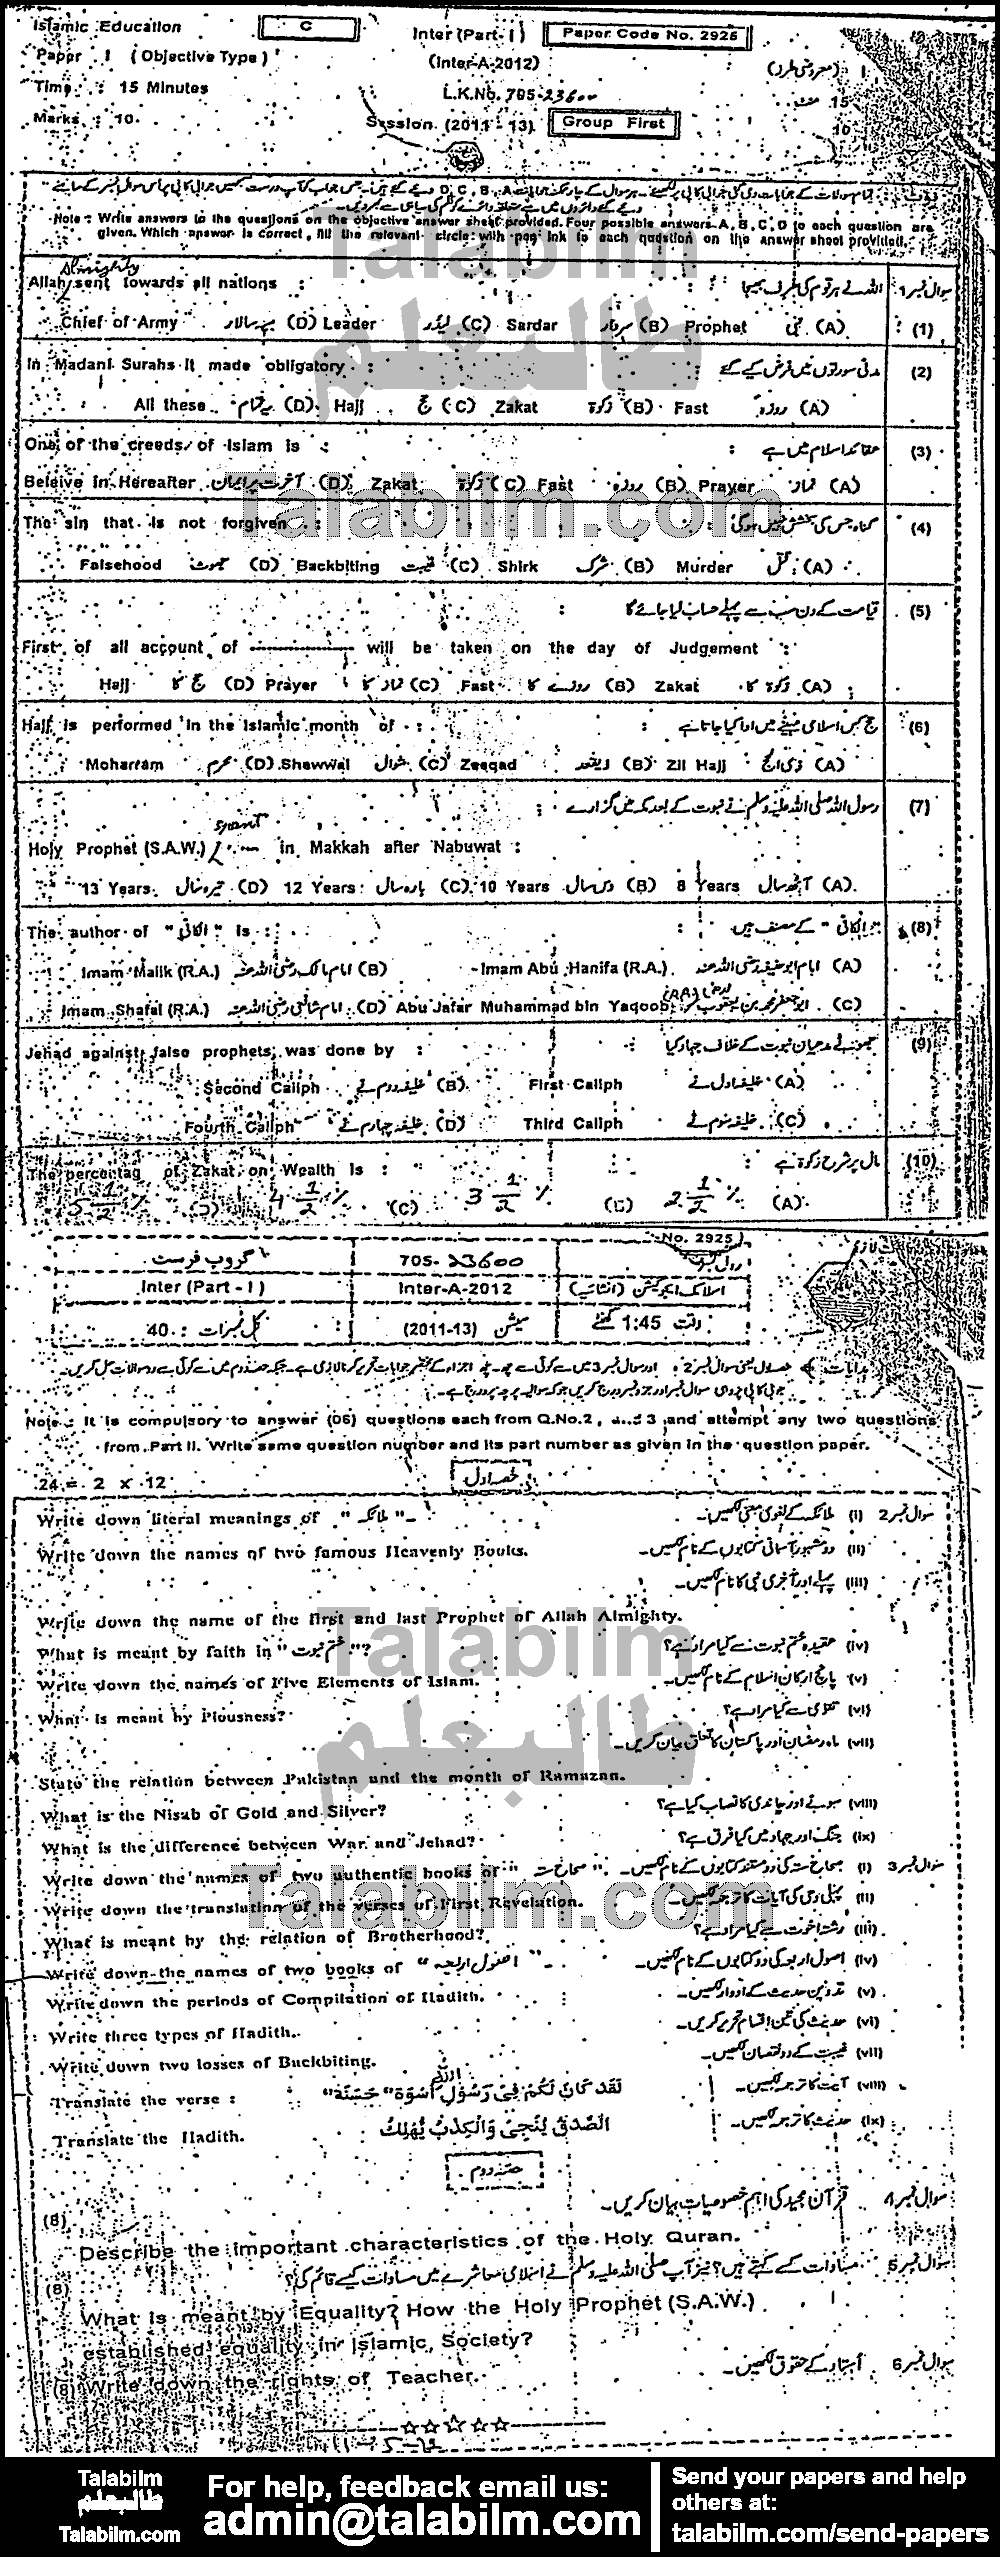 Islamic Education C Inter (Part-I) Paper Code No. 2925
Paper I (Objective Type) (Inter-A-2012) (معروضی طرز) I
Time : 15 Minutes L.K.No. 705-23600 15
Marks : 10 Session (2011 - 13) Group First 10
Note : Write answers to the questions on the objective answer sheet provided. Four possible answers A, B, C, D to each question are
given. Which answer is correct, fill the relevant circle with pen ink to each question on the answer sheet provided.
Allah Almighty sent towards all nations : اللہ نے ہر قوم کی طرف بھیجا : سوال نمبر 1
Chief of Army سپہ سالار (D) Leader لیڈر (C) Sardar سردار (B) Prophet نبی (A) (1)
In Madani Surahs it made obligatory : مدنی سورتوں میں فرض کیے گئے : (2)
All these یہ تمام (D) Hajj حج (C) Zakat زکوٰۃ (B) Fast روزہ (A)
One of the creeds of Islam is : عقائد اسلام میں ہے : (3)
Beleive in Hereafter آخرت پر ایمان (D) Zakat زکوٰۃ (C) Fast روزہ (B) Prayer نماز (A)
The sin that is not forgiven : گناہ جس کی بخشش نہیں ہوگی : (4)
Falsehood جھوٹ (D) Backbiting غیبت (C) Shirk شرک (B) Murder قتل (A)
قیامت کے دن سب سے پہلے حساب لیا جائے گا : (5)
First of all account of ------------ will be taken on the day of Judgement :
Hajj حج کا (D) Prayer نماز کا (C) Fast روزے کا (B) Zakat زکوٰۃ کا (A)
Hajj is performed in the Islamic month of : حج کس اسلامی مہینے میں ادا کیا جاتا ہے : (6)
Moharram محرم (D) Shawwal شوال (C) Zeeqad ذیقعد (B) Zil Hajj ذی الحج (A)
رسول اللہ صلی اللہ علیہ وسلم نے نبوت کے بعد مکہ میں گزارے : (7)
Holy Prophet (S.A.W.) spent ---- in Makkah after Nabuwat :
13 Years تیرہ سال (D) 12 Years بارہ سال (C) 10 Years دس سال (B) 8 Years آٹھ سال (A)
The author of "الکافی" is : "الکافی" کے مصنف ہیں : (8)
Imam Malik (R.A.) امام مالک رضی اللہ عنہ (B) Imam Abu Hanifa (R.A.) امام ابو حنیفہ رضی اللہ عنہ (A)
Imam Shafai (R.A.) امام شافعی رضی اللہ عنہ (D) Abu Jafar Muhammad bin Yaqoob (R.A) ابو جعفر محمد بن یعقوب (C)
Jehad against false prophets was done by : جھوٹے مدعیان نبوت کے خلاف جہاد کیا : (9)
Second Caliph خلیفہ دوم نے (B) First Caliph خلیفہ اول نے (A)
Fourth Caliph خلیفہ چہارم نے (D) Third Caliph خلیفہ سوم نے (C)
The percentag of Zakat on Wealth is : مال پر شرح زکوٰۃ ہے : (10)
5 1/2 % (D) 4 1/2 % (C) 3 1/2 % (B) 2 1/2 % (A)
No. 2925
گروپ فرسٹ 705-23600 رول نمبر
Inter (Part - I) Inter-A-2012 اسلامک ایجوکیشن (انشائیہ)
کل نمبرات : 40 سیشن (2011-13) وقت 1:45 گھنٹے
Note : It is compulsory to answer (06) questions each from Q.No.2, and 3 and attempt any two questions
from Part II. Write same question number and its part number as given in the question paper.
24 = 2 x 12 حصہ اول
Write down literal meanings of "ملائکہ" - ملائکہ کے لغوی معنی لکھیں۔ (i) سوال نمبر 2
Write down the names of two famous Heavenly Books. دو مشہور آسمانی کتابوں کے نام لکھیں۔ (ii)
پہلے اور آخری نبی کا نام لکھیں۔ (iii)
Write down the name of the first and last Prophet of Allah Almighty.
What is meant by faith in "ختم نبوت"? عقیدہ ختم نبوت سے کیا مراد ہے؟ (iv)
Write down the names of Five Elements of Islam. پانچ ارکان اسلام کے نام لکھیں۔ (v)
What is meant by Piousness? تقویٰ سے کیا مراد ہے؟ (vi)
ماہ رمضان اور پاکستان کا تعلق بیان کریں۔ (vii)
State the relation between Pakistan and the month of Ramazan.
What is the Nisab of Gold and Silver? سونے اور چاندی کا نصاب کیا ہے؟ (viii)
What is the difference between War and Jehad? جنگ اور جہاد میں کیا فرق ہے؟ (ix)
Write down the names of two authentic books of "صحاح ستہ" صحاح ستہ کی دو مستند کتابوں کے نام لکھیں۔ (i) سوال نمبر 3
Write down the translation of the verses of First Revelation. پہلی وحی کی آیات کا ترجمہ لکھیں۔ (ii)
What is meant by the relation of Brotherhood? رشتہ اخوت سے کیا مراد ہے؟ (iii)
Write down the names of two books of "اصول اربعہ" - اصول اربعہ کی دو کتابوں کے نام لکھیں۔ (iv)
Write down the periods of Compilation of Hadith. تدوین حدیث کے ادوار لکھیں۔ (v)
Write three types of Hadith. حدیث کی تین اقسام تحریر کریں۔ (vi)
Write down two losses of Backbiting. غیبت کے دو نقصان لکھیں۔ (vii)
Translate the verse : لَقَدْ كَانَ لَكُمْ فِيْ رَسُوْلِ اللّٰهِ اُسْوَةٌ حَسَنَةٌ آیت کا ترجمہ لکھیں۔ (viii)
Translate the Hadith. اَلصِّدْقُ يُنْجِيْ وَالْكِذْبُ يُهْلِكُ حدیث کا ترجمہ لکھیں۔ (ix)
حصہ دوم
(8) قرآن مجید کی اہم خصوصیات بیان کریں۔ سوال نمبر 4
Describe the important characteristics of the Holy Quran.
(8) مساوات کسے کہتے ہیں؟ نیز آپ صلی اللہ علیہ وسلم نے اسلامی معاشرے میں مساوات کیسے قائم کی؟ سوال نمبر 5
What is meant by Equality? How the Holy Prophet (S.A.W.)
established equality in Islamic Society?
استاد کے حقوق لکھیں۔ سوال نمبر 6
(8) Write down the rights of Teacher.
Talabilm
طالبعلم
Talabilm.com
Talabilm
طالبعلم
Talabilm.com
Talabilm
طالبعلم
Talabilm.com
For help, feedback email us:
admin@talabilm.com
Send your papers and help
others at:
talabilm.com/send-papers